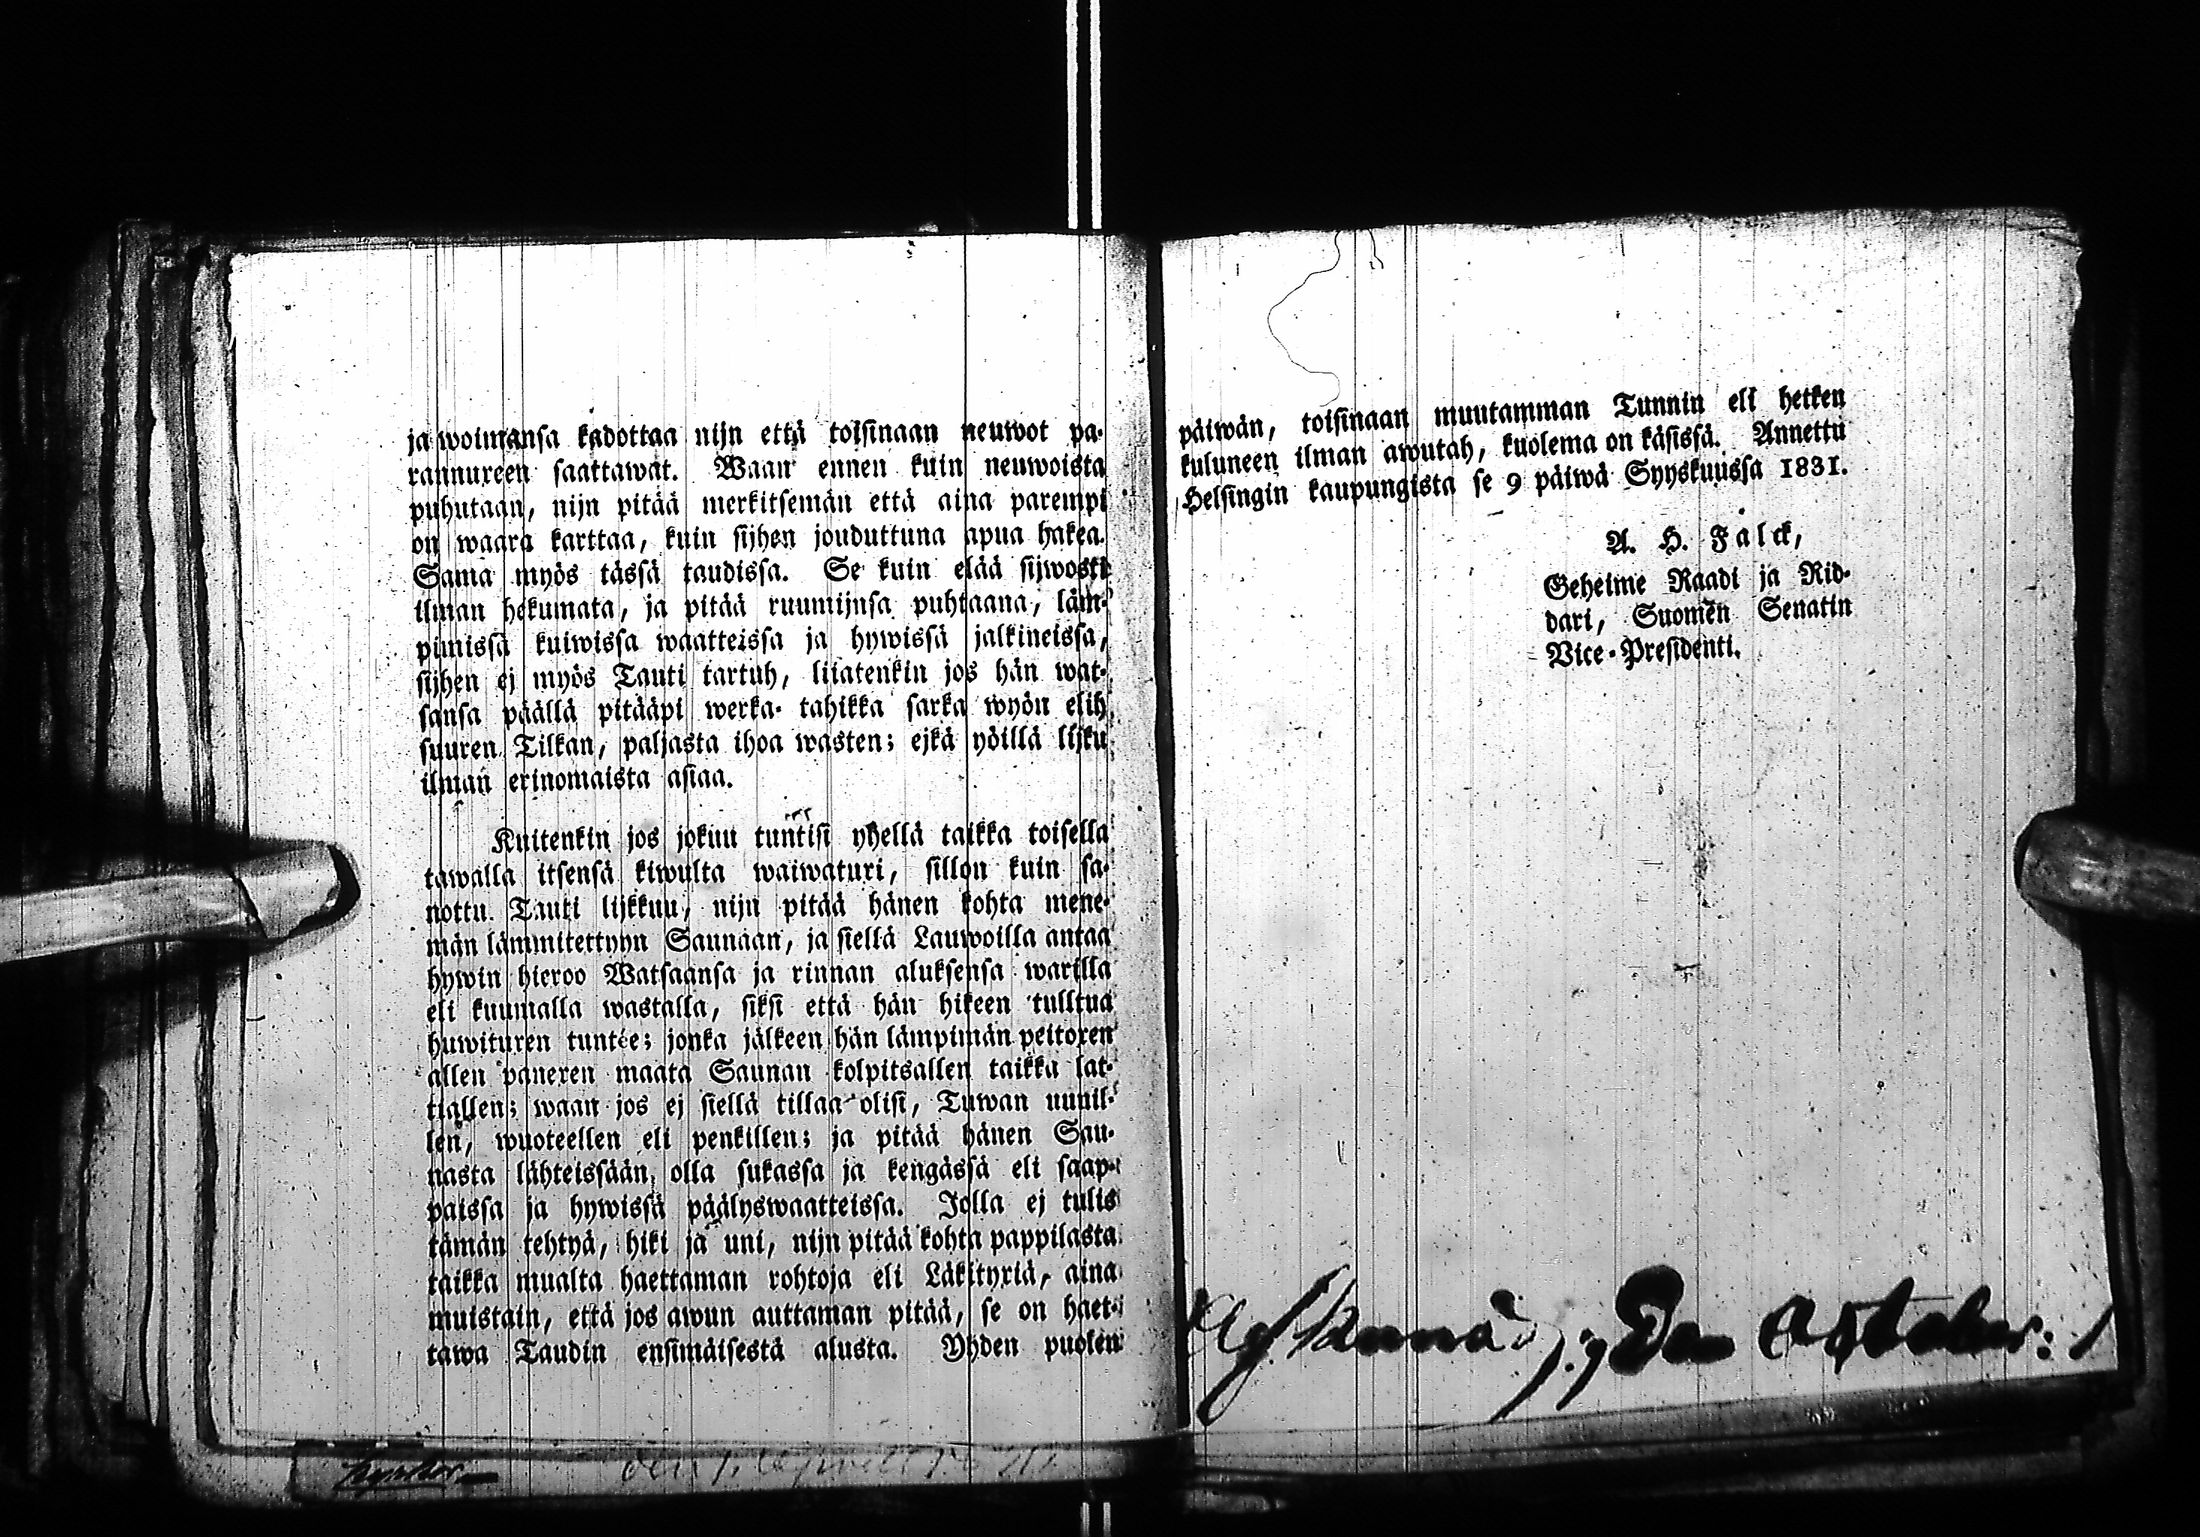 ja woimansa kadottaa nijn että toisinaan neuwot pa-
rannuxeen saattawat. Waan ennen kuin neuwoista
puhutaan, nijn pitää merkitsemän että aina parempi
on waara karttaa, kuin sijhen jouduttuna apua hakea.
Sama myös tässä taudissa. Se kuin elää sijwosti
ilman hekumata, ja pitää ruumijnsa puhtaana, läm-
pimissä kuiwissa waatteissa ja hywissä jalkineissa,
sijhen ej myös Tauti tartuh, liiatenkin jos hän wat-
sansa päällä pitääpi werka- tahikka sarka wyön elih
suuren Tilkan, paljasta ihoa wasten; ejkä yöillä lijku
ilman erinomaista asiaa.
Kuitenkin jos jokuu tuntisi yhellä taikka toisella
tawalla itsensä kiwulta waiwatuxi, sillon kuin sa-
nottu Tauti lijkkuu, nijn pitää hänen kohta mene-
män lämmitettyyn Saunaan, ja siellä Lauwoilla antaa
hywin hieroo Watsaansa ja rinnan aluksensa warilla
eli kuumalla wastalla, siksi että hän hikeen tulltua
huwituxen tuntee; jonka jälkeen hän lämpimän peitoxen
allen panexen maata Saunan kolpitsallen taikka lat-
tiallen; waan jos ej siellä tillaa olisi, Tuwan uunil-
len, wuoteellen eli penkillen; ja pitää hänen Sau-
nasta lähteissään olla sukassa ja kengässä eli saap-
paissa ja hywissä päälyswaatteissa. Jolla ej tulis
tämän tehtyä, hiki ja uni, nijn pitää kohta pappilasta
taikka mualta haettaman rohtoja eli Läkityxiä, aina
muistain, että jos awun auttaman pitää, se on haet-
tawa Taudin ensimäisestä alusta. Yhden puolen
päiwän, toisinaan muutamman Tunnin eli hetken
kuluneen ilman awutah, kuolema on käsissä. Annettu
Helsingin kaupungista se 9 päiwä Syyskuussa 1831.
A. H. Falck,
Geheime Raadi ja Rid-
dari, Suomen Senatin
Vice-Presidenti.
Den October: